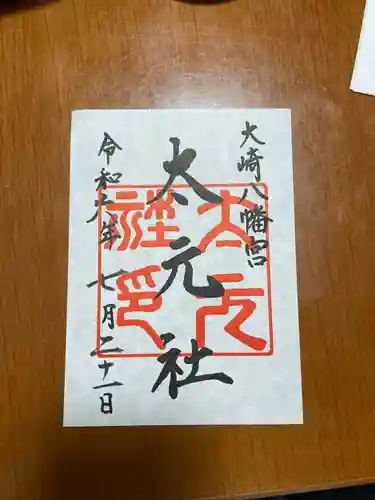 大崎八幡宮
太元社
令和 年 七月二十一日
太元社印